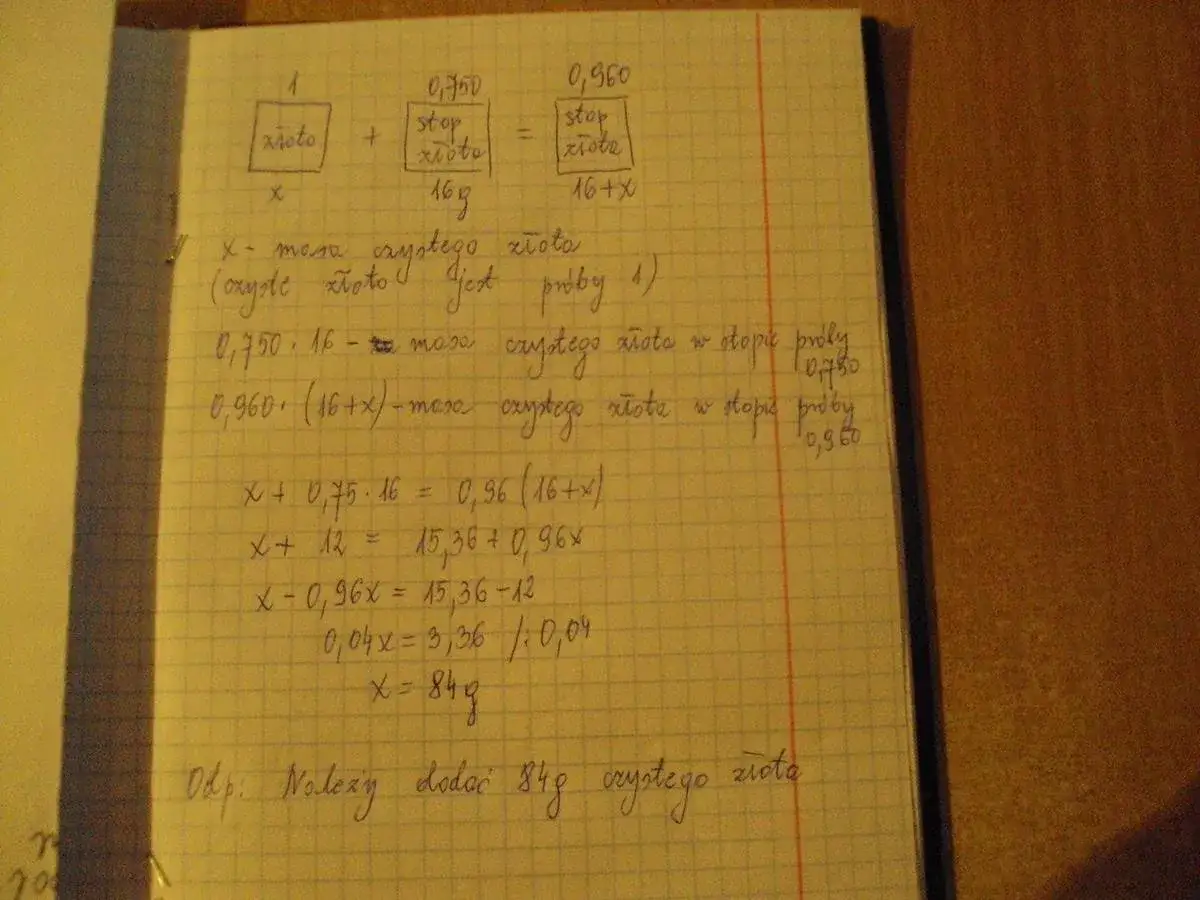 1 0,750 0,960
złoto + stop złota = stop złota
x 16g 16+x
x - masa czystego złota
(czyste złoto jest próby 1)
0,750 · 16 - masa czystego złota w stopie próby
0,750
0,960 · (16+x) - masa czystego złota w stopie próby
0,960
x + 0,75 · 16 = 0,96 (16+x)
x + 12 = 15,36 + 0,96x
x - 0,96x = 15,36 - 12
0,04x = 3,36 /: 0,04
x = 84g
Odp: Należy dodać 84g czystego złota